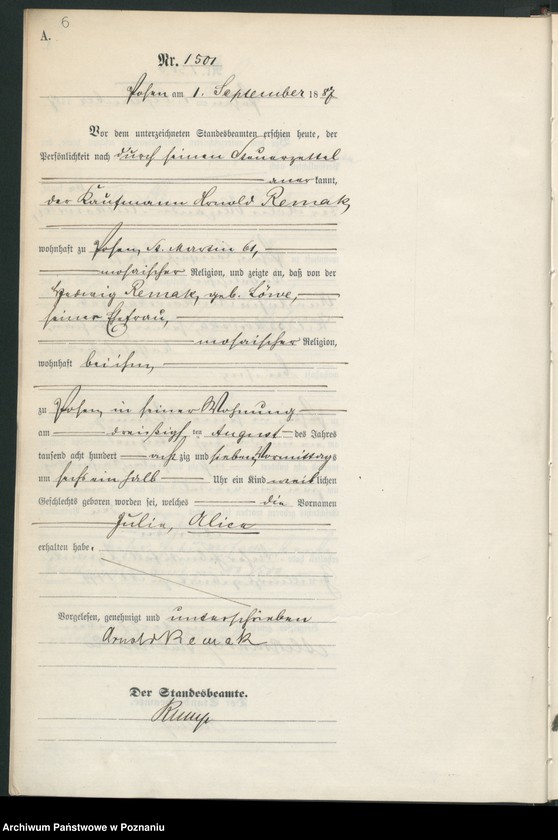 6
A.
Nr. 1501
Posen am 1. September 1887
Vor dem unterzeichneten Standesbeamten erschien heute, der
Persönlichkeit nach durch seinen Steuerzettel
anerkannt,
der Kaufmann Arnold Remak,
wohnhaft zu Posen, St. Martin 61,
mosaischer Religion, und zeigte an, daß von der
Hedwig Remak, geb. Löwe,
seiner Ehefrau,
mosaischer Religion,
wohnhaft bei ihm,
zu Posen, in seiner Wohnung
am dreißigsten August des Jahres
tausend acht hundert achtzig und sieben Vormittags
um sechs ein halb Uhr ein Kind weiblichen
Geschlechts geboren worden sei, welches die Vornamen
Julie, Alice
erhalten habe.
Vorgelesen, genehmigt und unterschrieben
Arnold Remak
Der Standesbeamte.
Archiwum Państwowe w Poznaniu